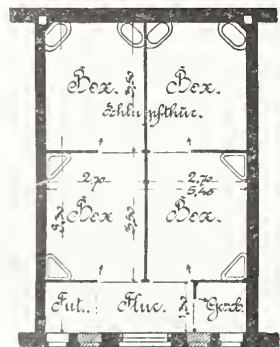 Box. Box.
Schlupfthür.
2.70 2.70
5.40
Box Box.
Fut. Flur. Gesch.